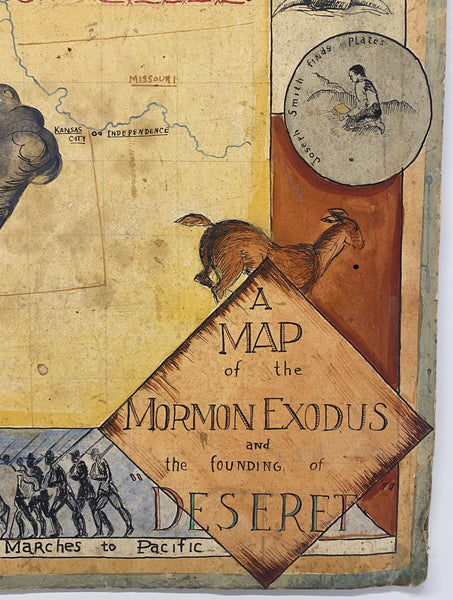 Joseph Smith finds Plates
MISSOURI
KANSAS
CITY
INDEPENDENCE
A
MAP
of the
MORMON EXODUS
and
the FOUNDING of
"DESERET"
Marches to Pacific